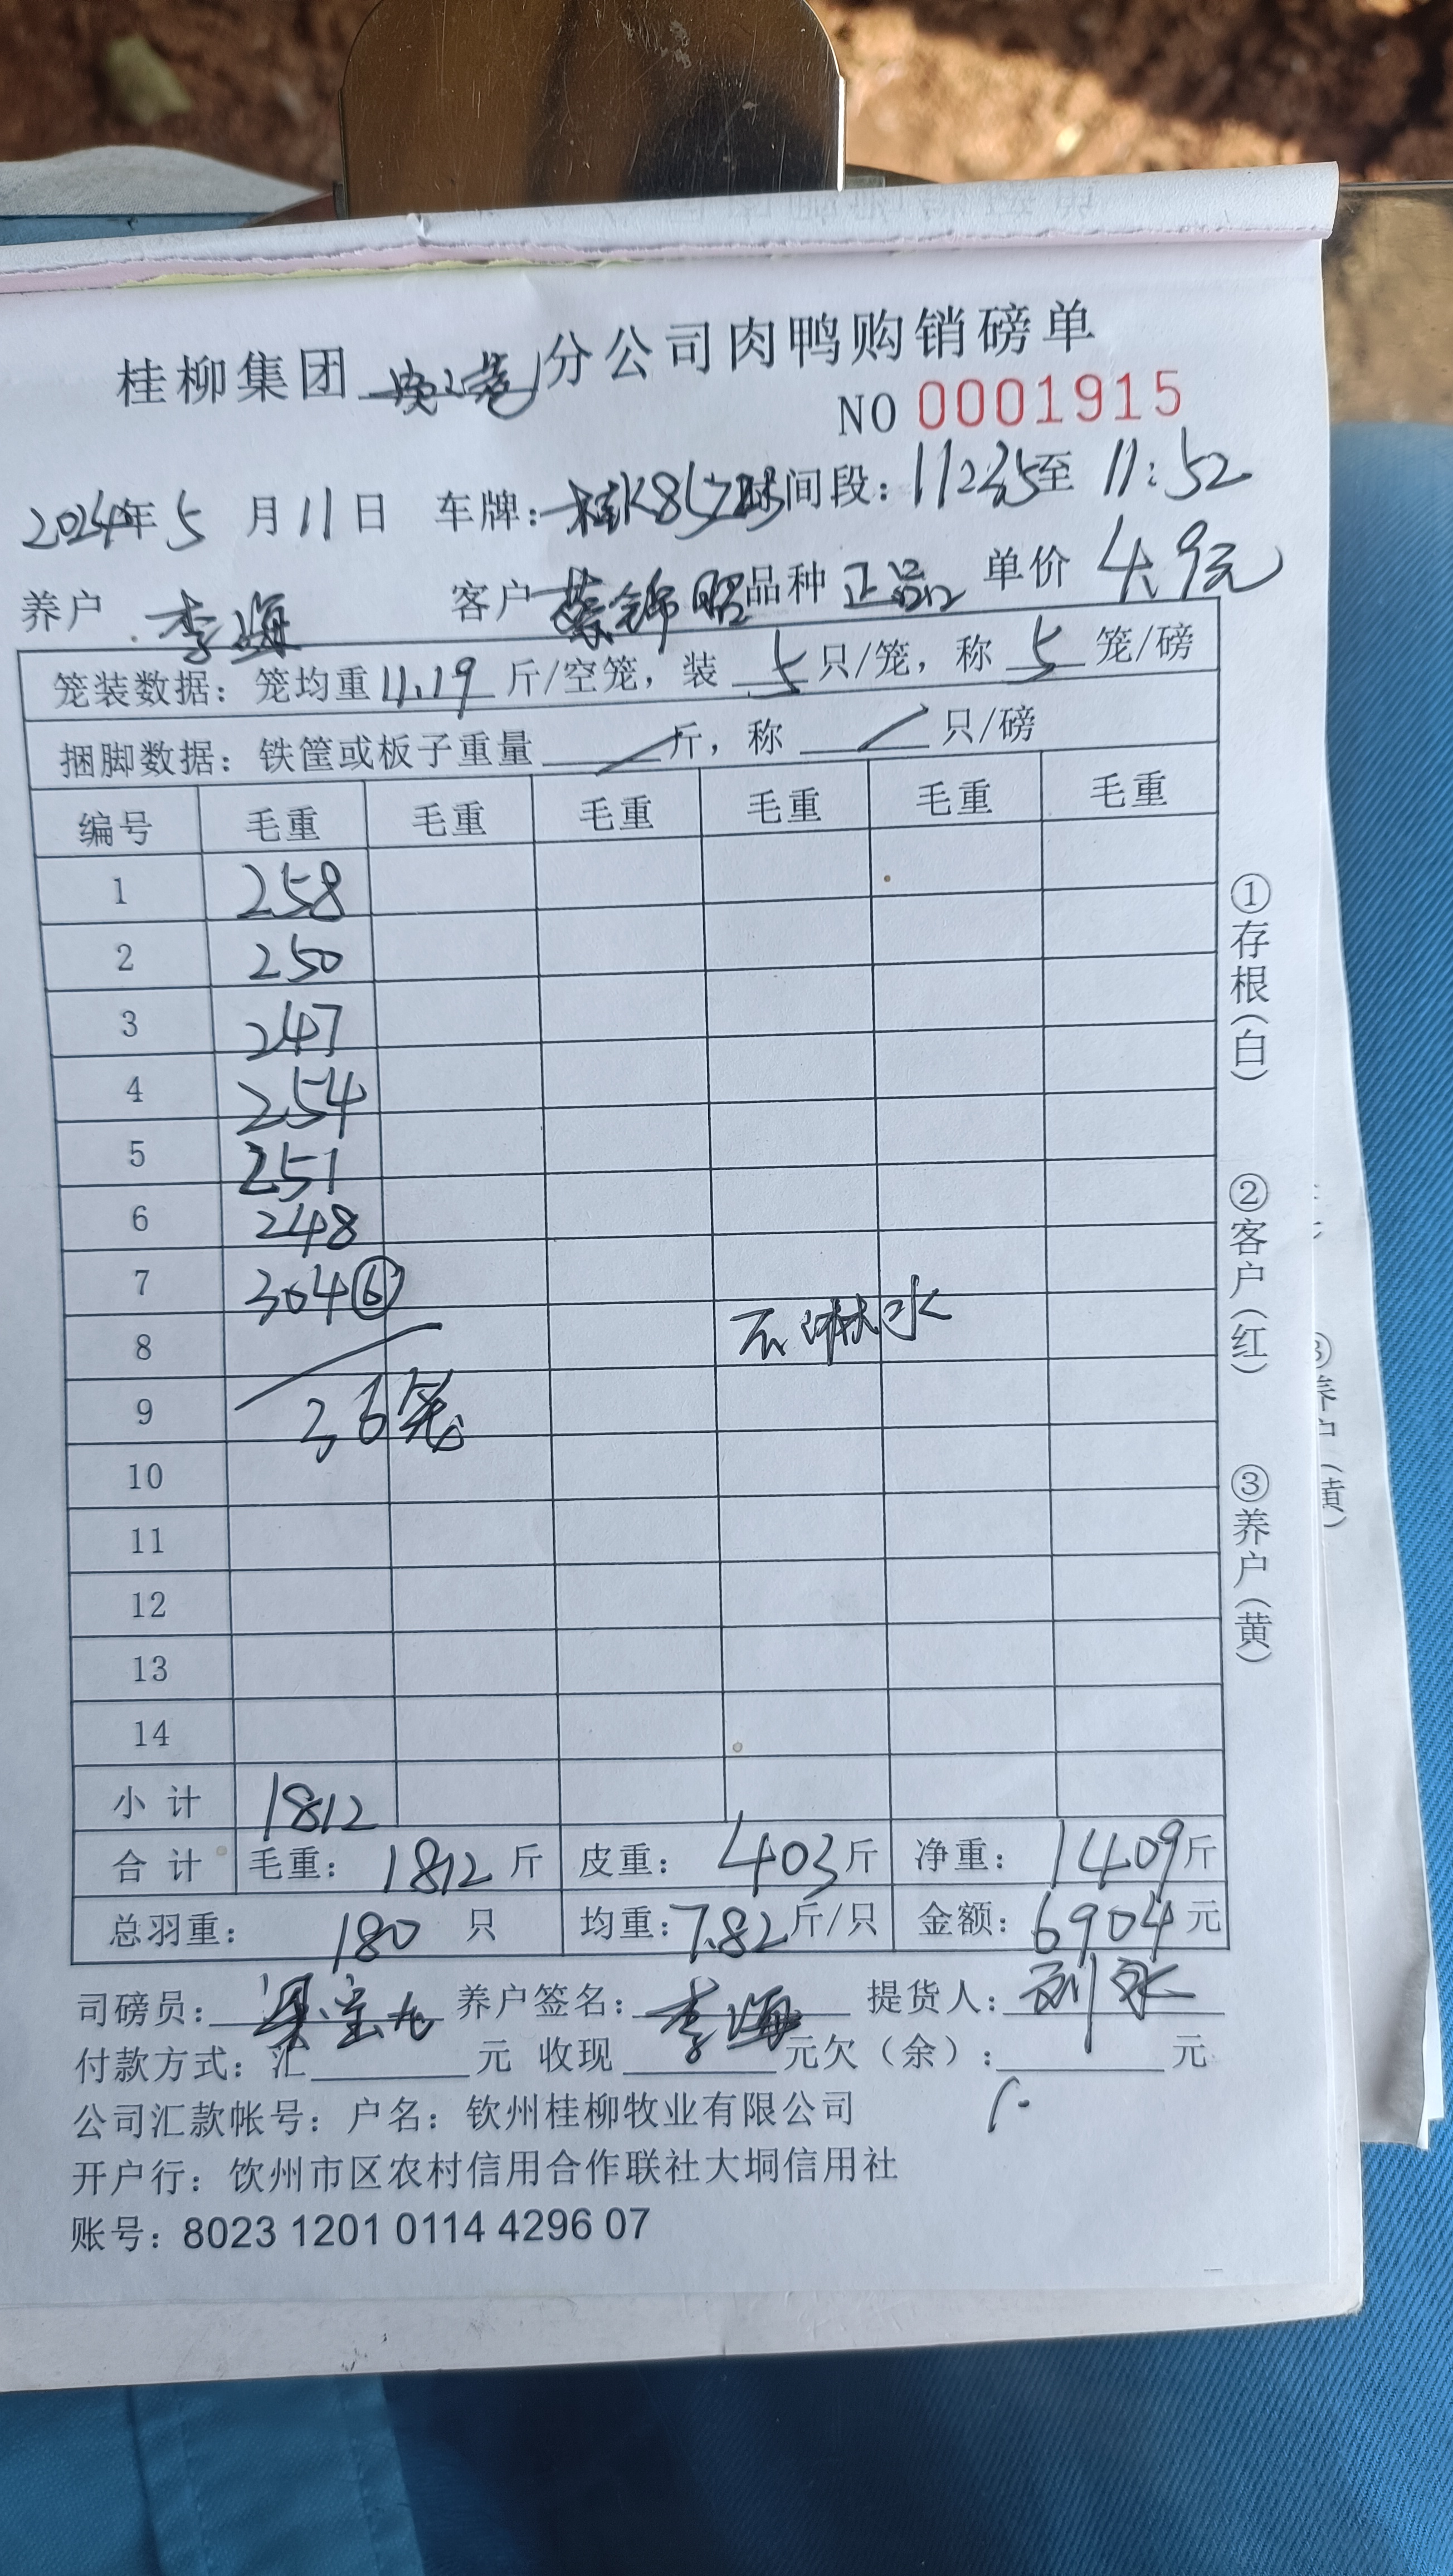 桂柳集团 分公司肉鸭购销磅单
NO 0001915
2024年5月11日 车牌: 时间段: 至 11:52
养户 李海 客户 锦昭 品种 正品 单价 4.9元
笼装数据: 笼均重 11.19 斤/空笼, 装 5 只/笼, 称 5 笼/磅
捆脚数据: 铁筐或板子重量 / 斤, 称 / 只/磅
编号 毛重 毛重 毛重 毛重 毛重 毛重
1 258
2 250
3 247
4 254
5 251
6 248
7 304⑥
8 不淋水
9 36笼
10
11
12
13
14
小计 1812
合计 毛重: 1812 斤 皮重: 403 斤 净重: 1409 斤
总羽重: 180 只 均重: 7.82 斤/只 金额: 6904 元
司磅员: 梁 养户签名: 李海 提货人: 刘永
付款方式: 汇 元 收现 元欠(余): 元
公司汇款帐号: 户名: 钦州桂柳牧业有限公司
开户行: 饮州市区农村信用合作联社大垌信用社
账号: 8023 1201 0114 4296 07
①存根(白)
②客户(红)
③养户(黄)
③养户(黄)